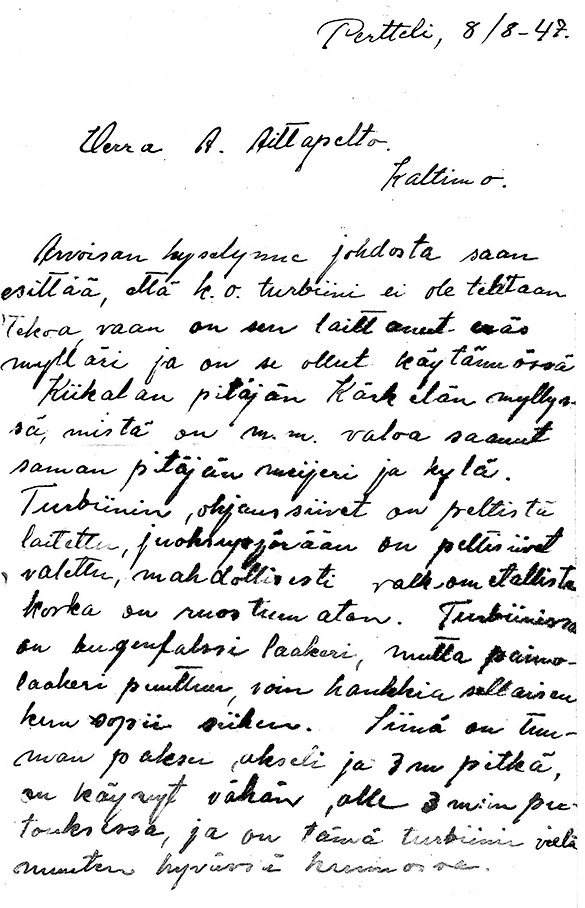 Pertteli, 8/8-47.
Herra A. Aittapelto.
Kaltimo.
Arvoisan kyselynne johdosta saan
esittää, että k.o. turbiini ei ole tehtaan
tekoa, vaan on sen laittanut eräs
mylläri ja on se ollut käytännössä
Kiikalan pitäjän Kärkelän myllys-
sä, mistä on m.m. valoa saanut
saman pitäjän meijeri ja kylä.
Turbiinin ohjaussiivet on peltistä
laitettu, juoksupyörään on peltisiivet
valettu, mahdollisesti valk. metallista
koska on ruostumaton. Turbiinissa
on laakeri, mutta paino-
laakeri puuttuu, voin hankkia sellaisen
kun sopii siihen. Siinä on tuu-
man paksu akseli ja 3 m pitkä,
on käynyt vähän alle 3 min pu-
touksessa, ja on tämä turbiini vielä
muuten hyvässä kunnossa.